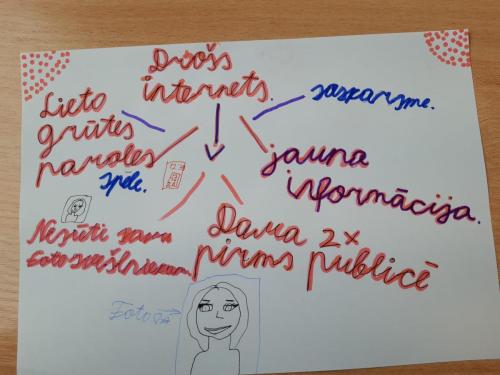 Drošs
internets.
Lieto
grūtes
paroles
spēle.
saskarsme.
jauna
informācija.
Nesūti savu
foto svešiniekam.
Dama 2x
pirms publicē
Foto